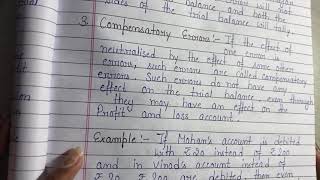 sides of the trial balance will tally.
3. Compensatory Errors :- If the effect of
one error is
neutralised by the effect of some other
errors, such errors are called compensatory
errors. Such errors do not have any
effect on the trial balance, even through
they may have an effect on the
Profit and loss account.
Example :- If Mohan's account is debited
with ₹20 instead of ₹200
and in Vinod's account instead of
₹20, ₹200 are debited, then even